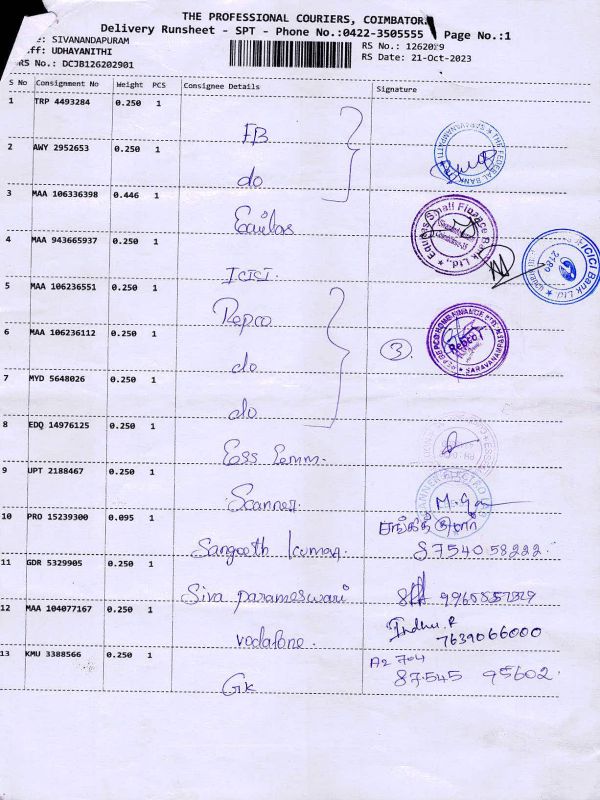 THE PROFESSIONAL COURIERS, COIMBATOR
Delivery Runsheet - SPT - Phone No.:0422-3505555 Page No.:1
: SIVANANDAPURAM
ff: UDHAYANITHI
RS No.: DCJB126202901
RS No.: 1262029
RS Date: 21-Oct-2023
S No Consignment No Weight PCS Consignee Details Signature
1 TRP 4493284 0.250 1 FB
2 AWY 2952653 0.250 1 do
THE FEDERAL BANK
3 MAA 106336398 0.446 1 Equitas
Equitas Small Finance Bank Ltd.,
4 MAA 943665937 0.250 1 ICICI.
ICICI Bank Ltd.
5 MAA 106236551 0.250 1 Repco
6 MAA 106236112 0.250 1 do
3
REPCO HOME FINANCE LTD.
Repco
SARAVANAMPATTI
7 MYD 5648026 0.250 1 do
8 EDQ 14976125 0.250 1 Ess
9 UPT 2188467 0.250 1 Scanner
10 PRO 15239300 0.095 1 Sangeeth Kumar. 8754058222
11 GDR 5329905 0.250 1 Siva parameswari
12 MAA 104077167 0.250 1 vodafone. Indhu.R
7639066000
13 KMU 3388566 0.250 1 Gk A2 704
87545 95602